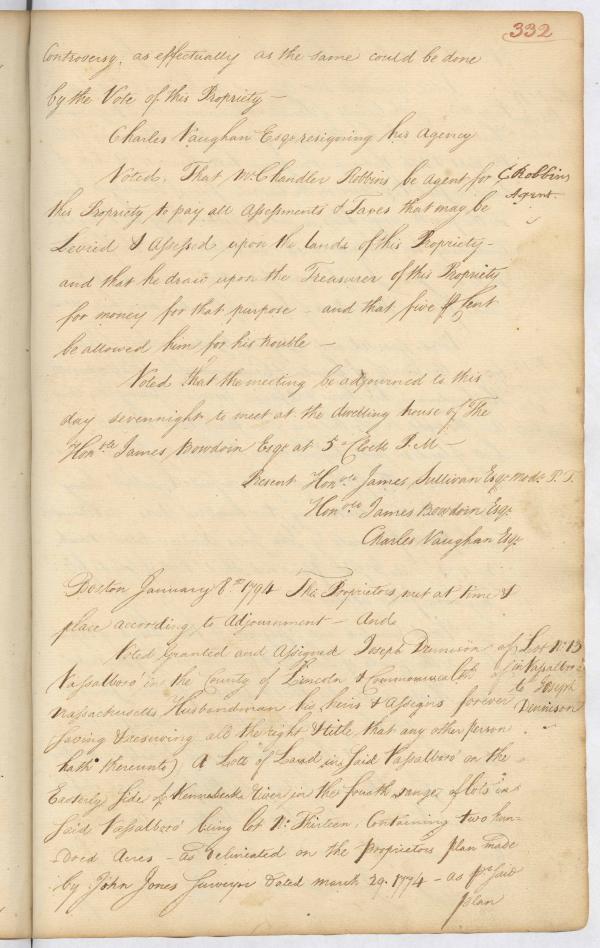 332
Controversy, as effectually as the same could be done
by the Vote of this Propriety —
Charles Vaughan Esqr resigning his Agency
Voted, That Mr Chandler Robbins be Agent for
C Robbins
Agent.
this Propriety to pay all Assessments & Taxes that may be
Levied & Assessed upon the lands of this Propriety -
and that he draw upon the Treasurer of this Propriety
for money for that purpose - and that five P Cent
be allowed him for his trouble —
Voted that the meeting be adjourned to this
day sevennight to meet at the dwelling house of The
Honble James Bowdoin Esqr at 5 oClock P.M —
Present Honble James Sullivan Esqr Modr P. T.
Honble James Bowdoin Esqr
Charles Vaughan Esqr
Boston January 8th 1794 The Proprietors met at time &
place according to Adjournment — And
Voted Granted and Assigned Joseph Dennison of
Lot No 13
in Vassalboro
to Joseph
Dennison
Vassalboro' in the County of Lincoln & Commonwealth of
Massachusetts Husbandman his heirs & Assigns forever
(saving & reserving all the right & title that any other person
hath thereunto) A Lott of Land in said Vassalboro' on the
Easterly side of Kennebeck River in the fourth range of lots in
said Vassalboro' being lot No Thirteen, Containing two hun-
-dred Acres - as delineated on the Proprietors plan made
by John Jones Surveyor dated march 29. 1774 - as pr said
plan